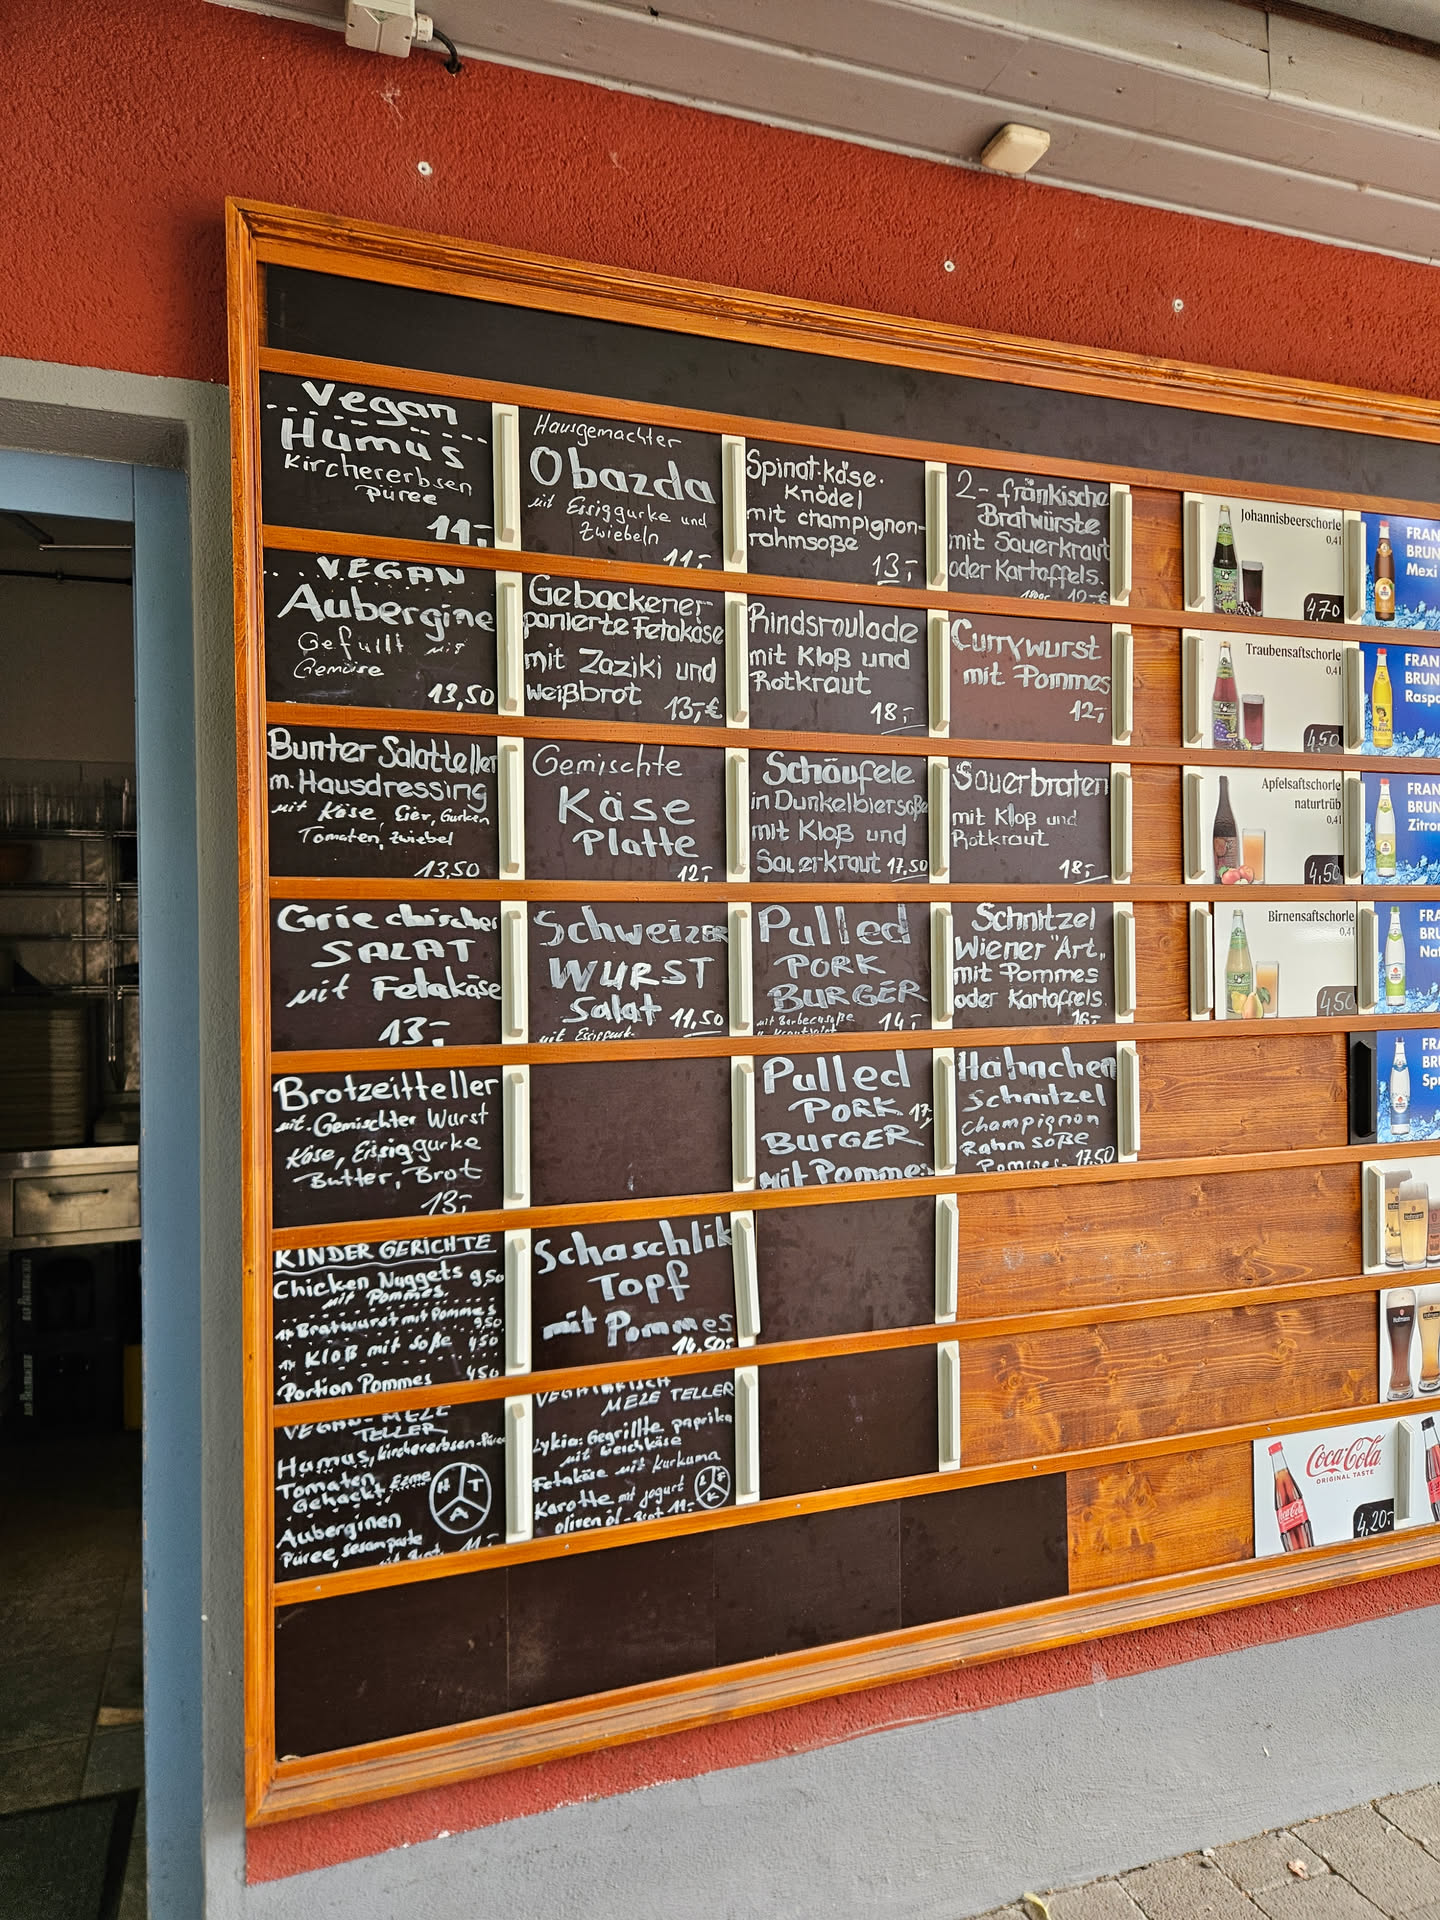 Vegan
Humus
Kirchererbsen
püree
11,-
VEGAN
Aubergine
Gefüllt mit
Gemüse
13,50
Bunter Salatteller
m. Hausdressing
mit Käse, Eier, Gurken
Tomaten, zwiebel
13,50
Griechischer
SALAT
mit Fetakäse
13,-
Brotzeitteller
mit Gemischter Wurst
Käse, Essiggurke
Butter, Brot
13,-
KINDER GERICHTE
Chicken Nuggets 9,50
mit Pommes
1x Bratwurst mit Pommes
9,50
1x KloB mit soße 4,50
Portion Pommes 4,50
VEGAN-MEZE
TELLER
Humus, kirchererbsen-Püree
Tomaten
Gehackt, Ezme
Auberginen
Püree, sesampaste
mit Brot 11,-
H T
A
Hausgemachter
Obazda
mit Essiggurke und
Zwiebeln
11,-
Gebackener
panierte Fetakäse
mit Zaziki und
Weißbrot 13,-€
Gemischte
Käse
Platte
12,-
Schweizer
WURST
Salat 11,50
mit Essiggurk
Schaschlik
Topf
mit Pommes
14,50
VEGITARISCH
MEZE TELLER
Lykia: Gegrillte paprika
mit Weichkäse
Fetakäse mit Kurkuma
Karotte mit jogurt
oliven öl - Brot 11,-
L F
K
Spinat-käse-
Knödel
mit champignon-
rahmsoße
13,-
Rindsroulade
mit Kloß und
Rotkraut
18,-
Schäufele
in Dunkelbiersoße
mit Kloß und
Sauerkraut 17,50
Pulled
PORK
BURGER
mit Barbecusoße 14,-
Pulled
PORK 17,-
BURGER
mit Pommes
2- fränkische
Bratwürste
mit Sauerkraut
oder Kartoffels.
12,-€
Currywurst
mit Pommes
12,-
Sauerbraten
mit Kloß und
Rotkraut
18,-
Schnitzel
Wiener "Art"
mit Pommes
oder Kartoffels.
16,-
Hähnchen
Schnitzel
champignon
Rahm soße
Pommes 17,50
Johannisbeerschorle
0,4l
4,70
Traubensaftschorle
0,4l
4,50
Apfelsaftschorle
naturtrüb
0,4l
4,50
Birnensaftschorle
0,4l
4,50
FRAN
BRUN
Mexi
FRAN
BRUN
Raspo
FRAN
BRUN
Zitron
FRA
BRU
Nat
FRA
BRU
Spr
Coca-Cola
ORIGINAL TASTE
4,20-